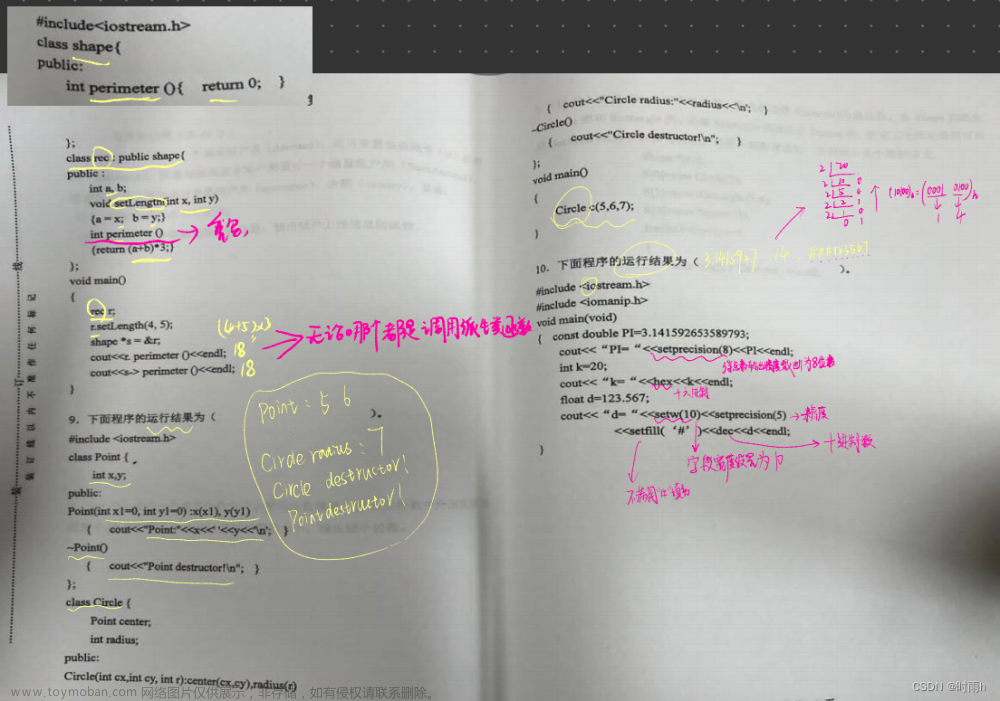 #include<iostream.h>
class shape{
public:
int perimeter (){ return 0; }
};
class rec : public shape{
public :
int a, b;
void setLength(int x, int y)
{a = x; b = y;}
int perimeter ()
{return (a+b)*3;}
};
void main()
{
rec r;
r.setLength(4, 5);
shape *s = &r;
cout<<r. perimeter ()<<endl;
cout<<s-> perimeter ()<<endl;
}
(4+5)x3
18
18
9．下面程序的运行结果为（ ）。
#include <iostream.h>
class Point {
int x,y;
public:
Point(int x1=0, int y1=0) :x(x1), y(y1)
{ cout<<"Point:"<<x<<' '<<y<<'\n'; }
~Point()
{ cout<<"Point destructor!\n"; }
};
class Circle {
Point center;
int radius;
public:
Circle(int cx,int cy, int r):center(cx,cy),radius(r)
Point: 5 6
Circle radius: 7
Circle destructor!
Point destructor!
{ cout<<"Circle radius:"<<radius<<'\n'; }
~Circle()
{ cout<<"Circle destructor!\n"; }
};
void main()
{
Circle c(5,6,7);
}
10．下面程序的运行结果为（ 3.1415927 , 14 , ）。
#include <iostream.h>
#include <iomanip.h>
void main(void)
{ const double PI=3.141592653589793;
cout<< “PI= “<<setprecision(8)<<PI<<endl;
int k=20;
cout<< “k= “<<hex<<k<<endl;
十六进制
float d=123.567;
cout<< “d= “<<setw(10)<<setprecision(5) 精度
<<setfill( ‘#’ )<<dec<<d<<endl;
十进制数
字段宽度设置为10
}
www.toymoban.com 网络图片仅供展示，非存储，如有侵权请联系删除。
CSDN @时雨h